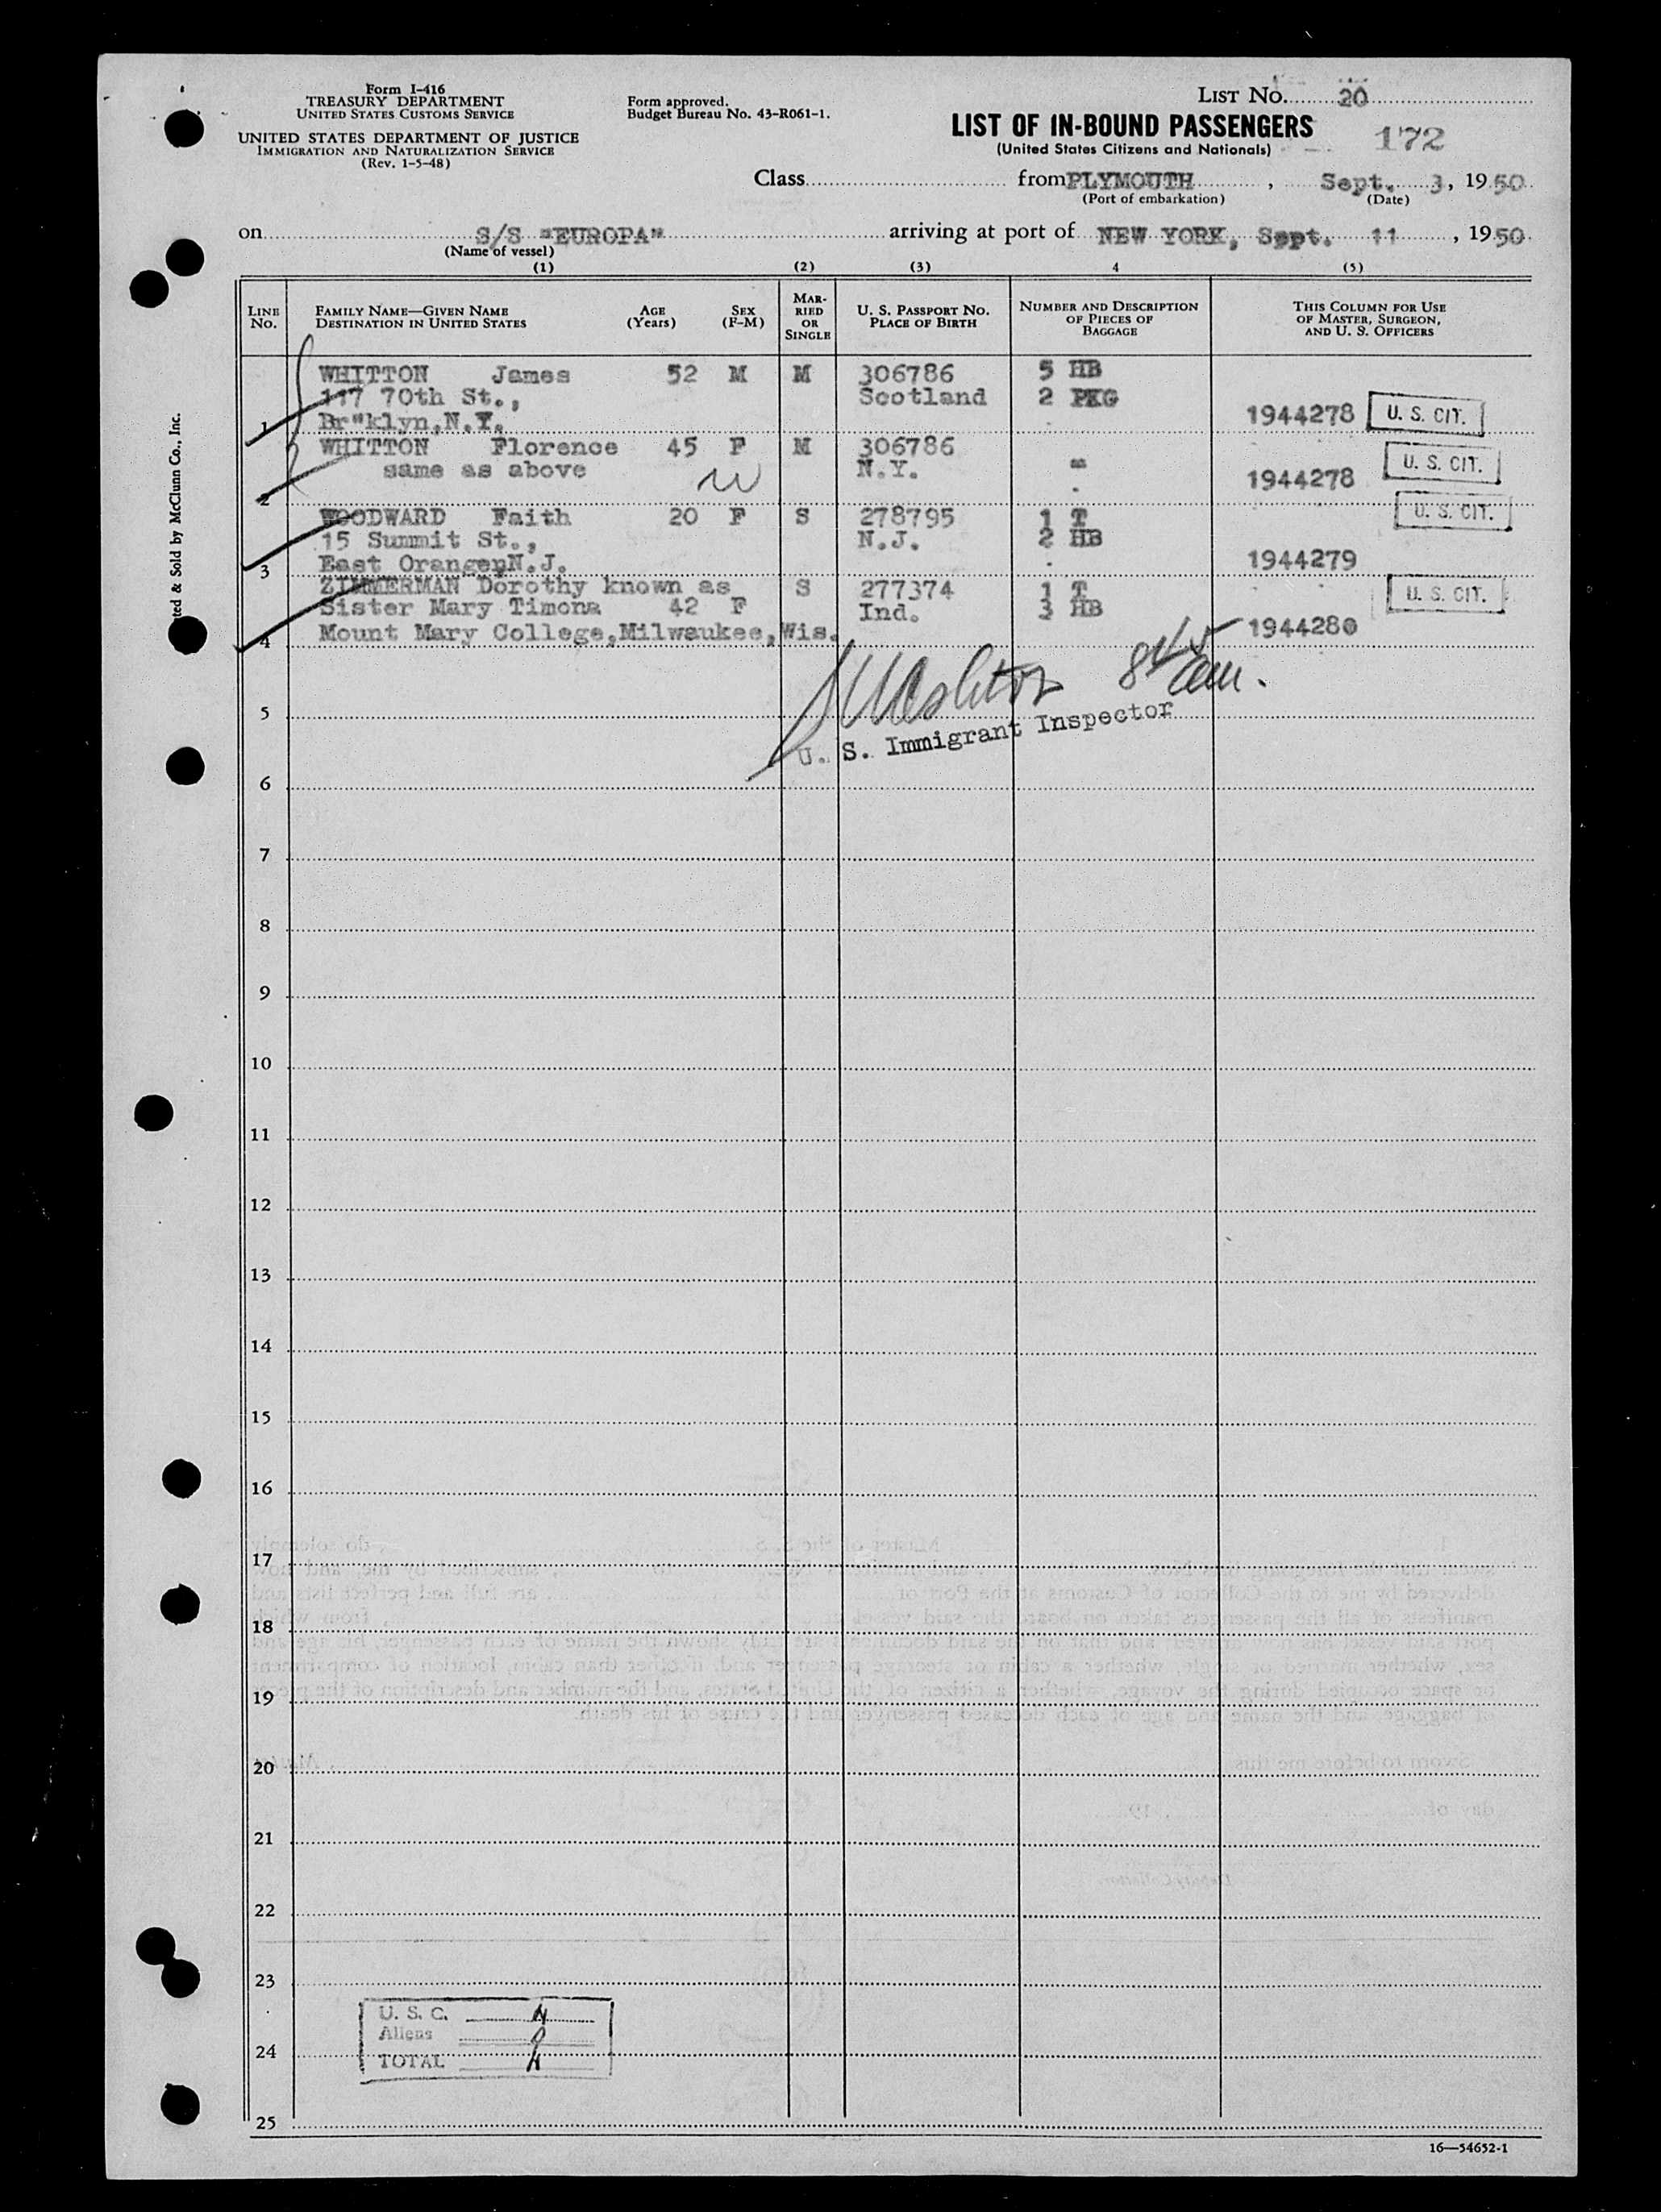 Form I-416
TREASURY DEPARTMENT
UNITED STATES CUSTOMS SERVICE
UNITED STATES DEPARTMENT OF JUSTICE
IMMIGRATION AND NATURALIZATION SERVICE
(Rev. 1-5-48)
Form approved.
Budget Bureau No. 43-R061-1.
LIST NO. 20
LIST OF IN-BOUND PASSENGERS
(United States Citizens and Nationals)
172
Class from PLYMOUTH, Sept. 3, 1950
(Port of embarkation) (Date)
on S/S "EUROPA" arriving at port of NEW YORK, Sept. 11, 1950
(Name of vessel)
(1) (2) (3) 4 (5)
LINE No.
FAMILY NAME—GIVEN NAME
DESTINATION IN UNITED STATES
AGE (Years)
SEX (F-M)
MARRIED OR SINGLE
U. S. PASSPORT NO.
PLACE OF BIRTH
NUMBER AND DESCRIPTION OF PIECES OF BAGGAGE
THIS COLUMN FOR USE OF MASTER, SURGEON, AND U. S. OFFICERS
WHITTON James 52 M M 306786 5 HB
117 70th St., Scotland 2 PKG
1 Br"klyn,N.Y. 1944278 U. S. CIT.
WHITTON Florence 45 F M 306786
same as above N.Y. " U. S. CIT.
2 1944278
WOODWARD Faith 20 F S 278795 1 T U. S. CIT.
15 Summit St., N.J. 2 HB
3 East Orange,N.J. 1944279
ZIMMERMAN Dorothy known as S 277374 1 T U. S. CIT.
Sister Mary Timona 42 F Ind. 3 HB
4 Mount Mary College,Milwaukee,Wis. 1944280
845 am.
U. S. Immigrant Inspector
5
6
7
8
9
10
11
12
13
14
15
16
17
18
19
20
21
22
23
U. S. C. 4
Aliens 0
24 TOTAL 4
25
16—54652-1
ted & Sold by McClunn Co., Inc.